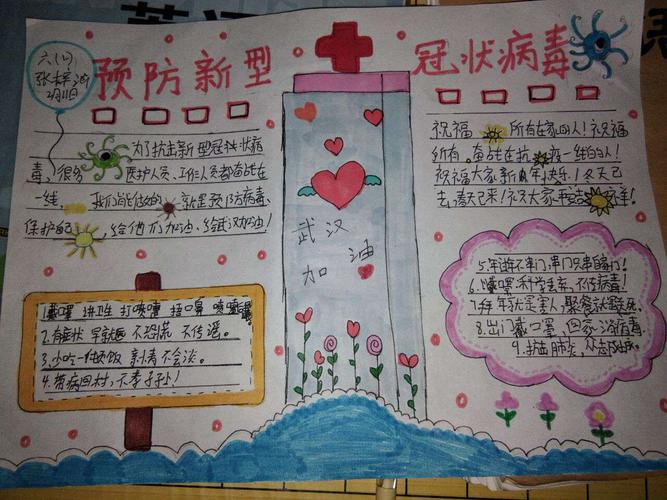 六(1)
张梓
2月11日
预防新型
冠状病毒
为了抗击新型冠状病
毒,很多医护人员、工作人员都奋战在
一线。我们能做的就是预防病毒、
保护自己,给他们加油、给武汉加油!
武汉
加油
祝福所有在家的人!祝福
所有奋战在抗疫一线的人!
祝福大家新年快乐!冬天已
去,春天已来!祝大家
1.戴口罩 讲卫生 打喷嚏 捂口鼻
2.有症状 早就医 不恐慌 不传谣。
3.小吃一种饭 新春不会
4.带病回村,不孝子孙!
5.年逛不串门,串门只串自家门!
6.戴口罩,科学手亲,不传病毒!
7.拜年就是害人,聚餐就是找死。
8.出门戴口罩,回家病毒
9.抗击肺炎,众志成城。